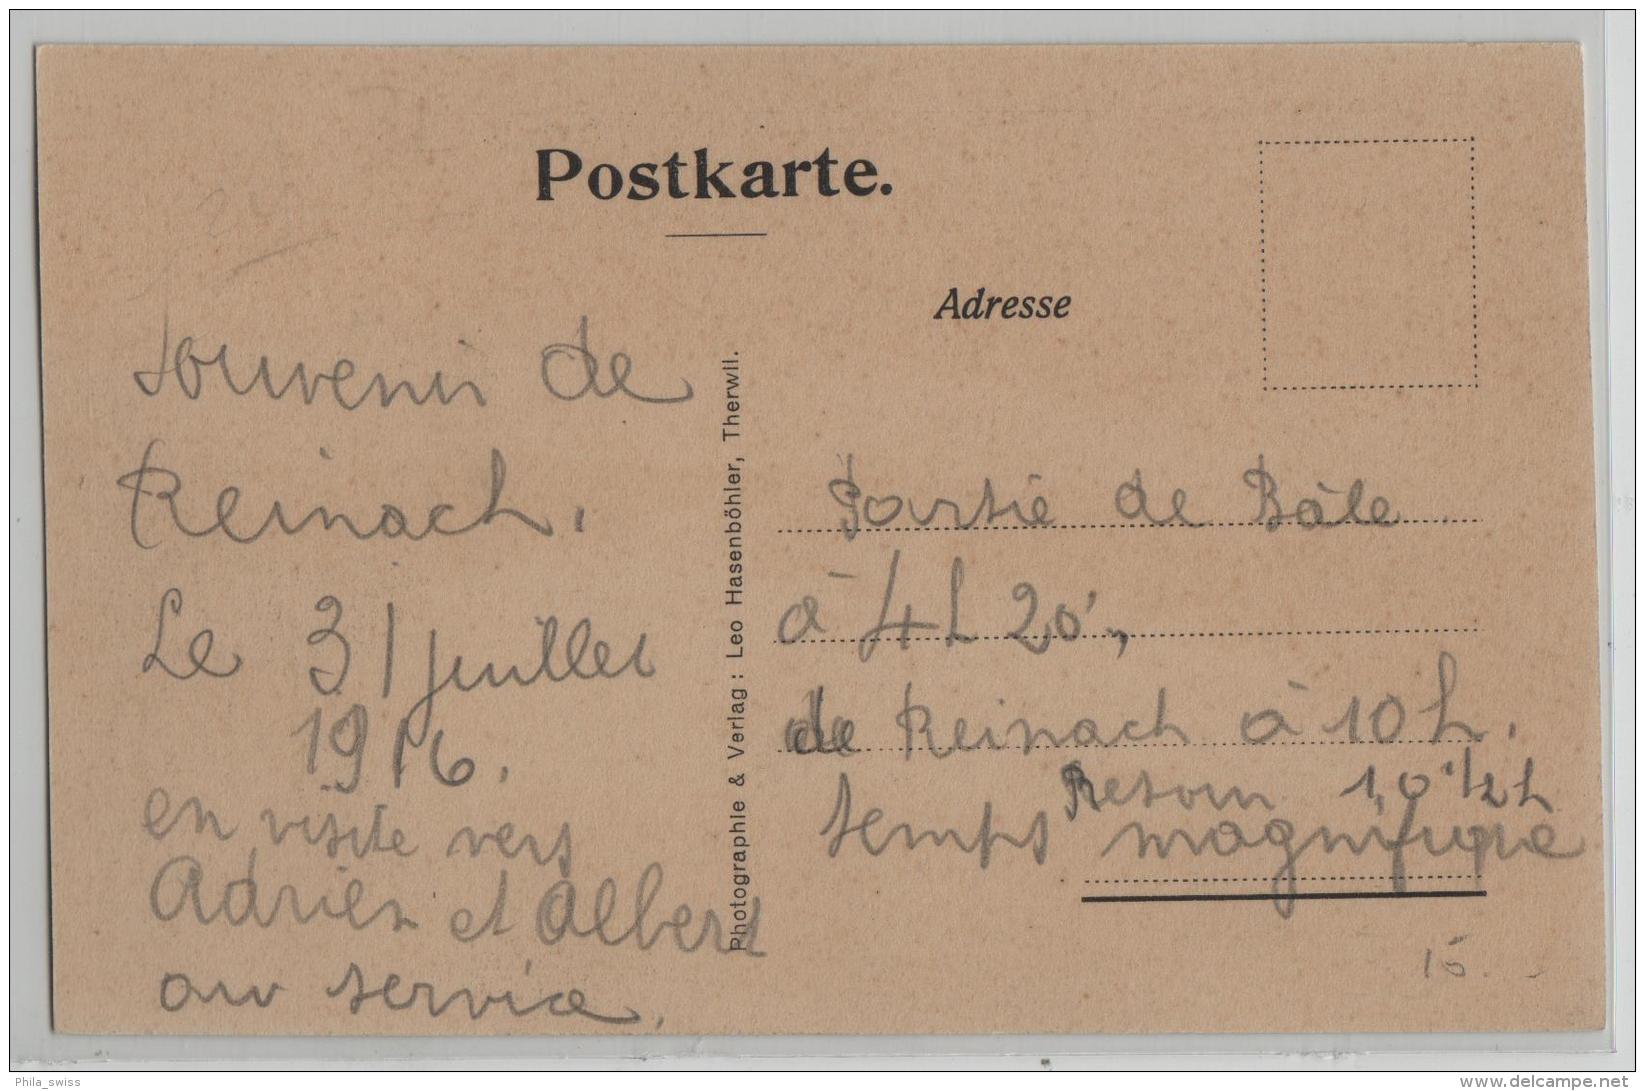 Postkarte.
Adresse
Souvenir de
Reinach.
Le 31 juillet
1916.
en visite vers
Adrien et Albert
au service.
Photographie & Verlag: Leo Hasenböhler, Therwil.
Partie de Bâle
à 4h 20',
de Reinach à 10 h.
Retour 10 1/2 h
temps magnifique
15
Phila_swiss
www.delcampe.net